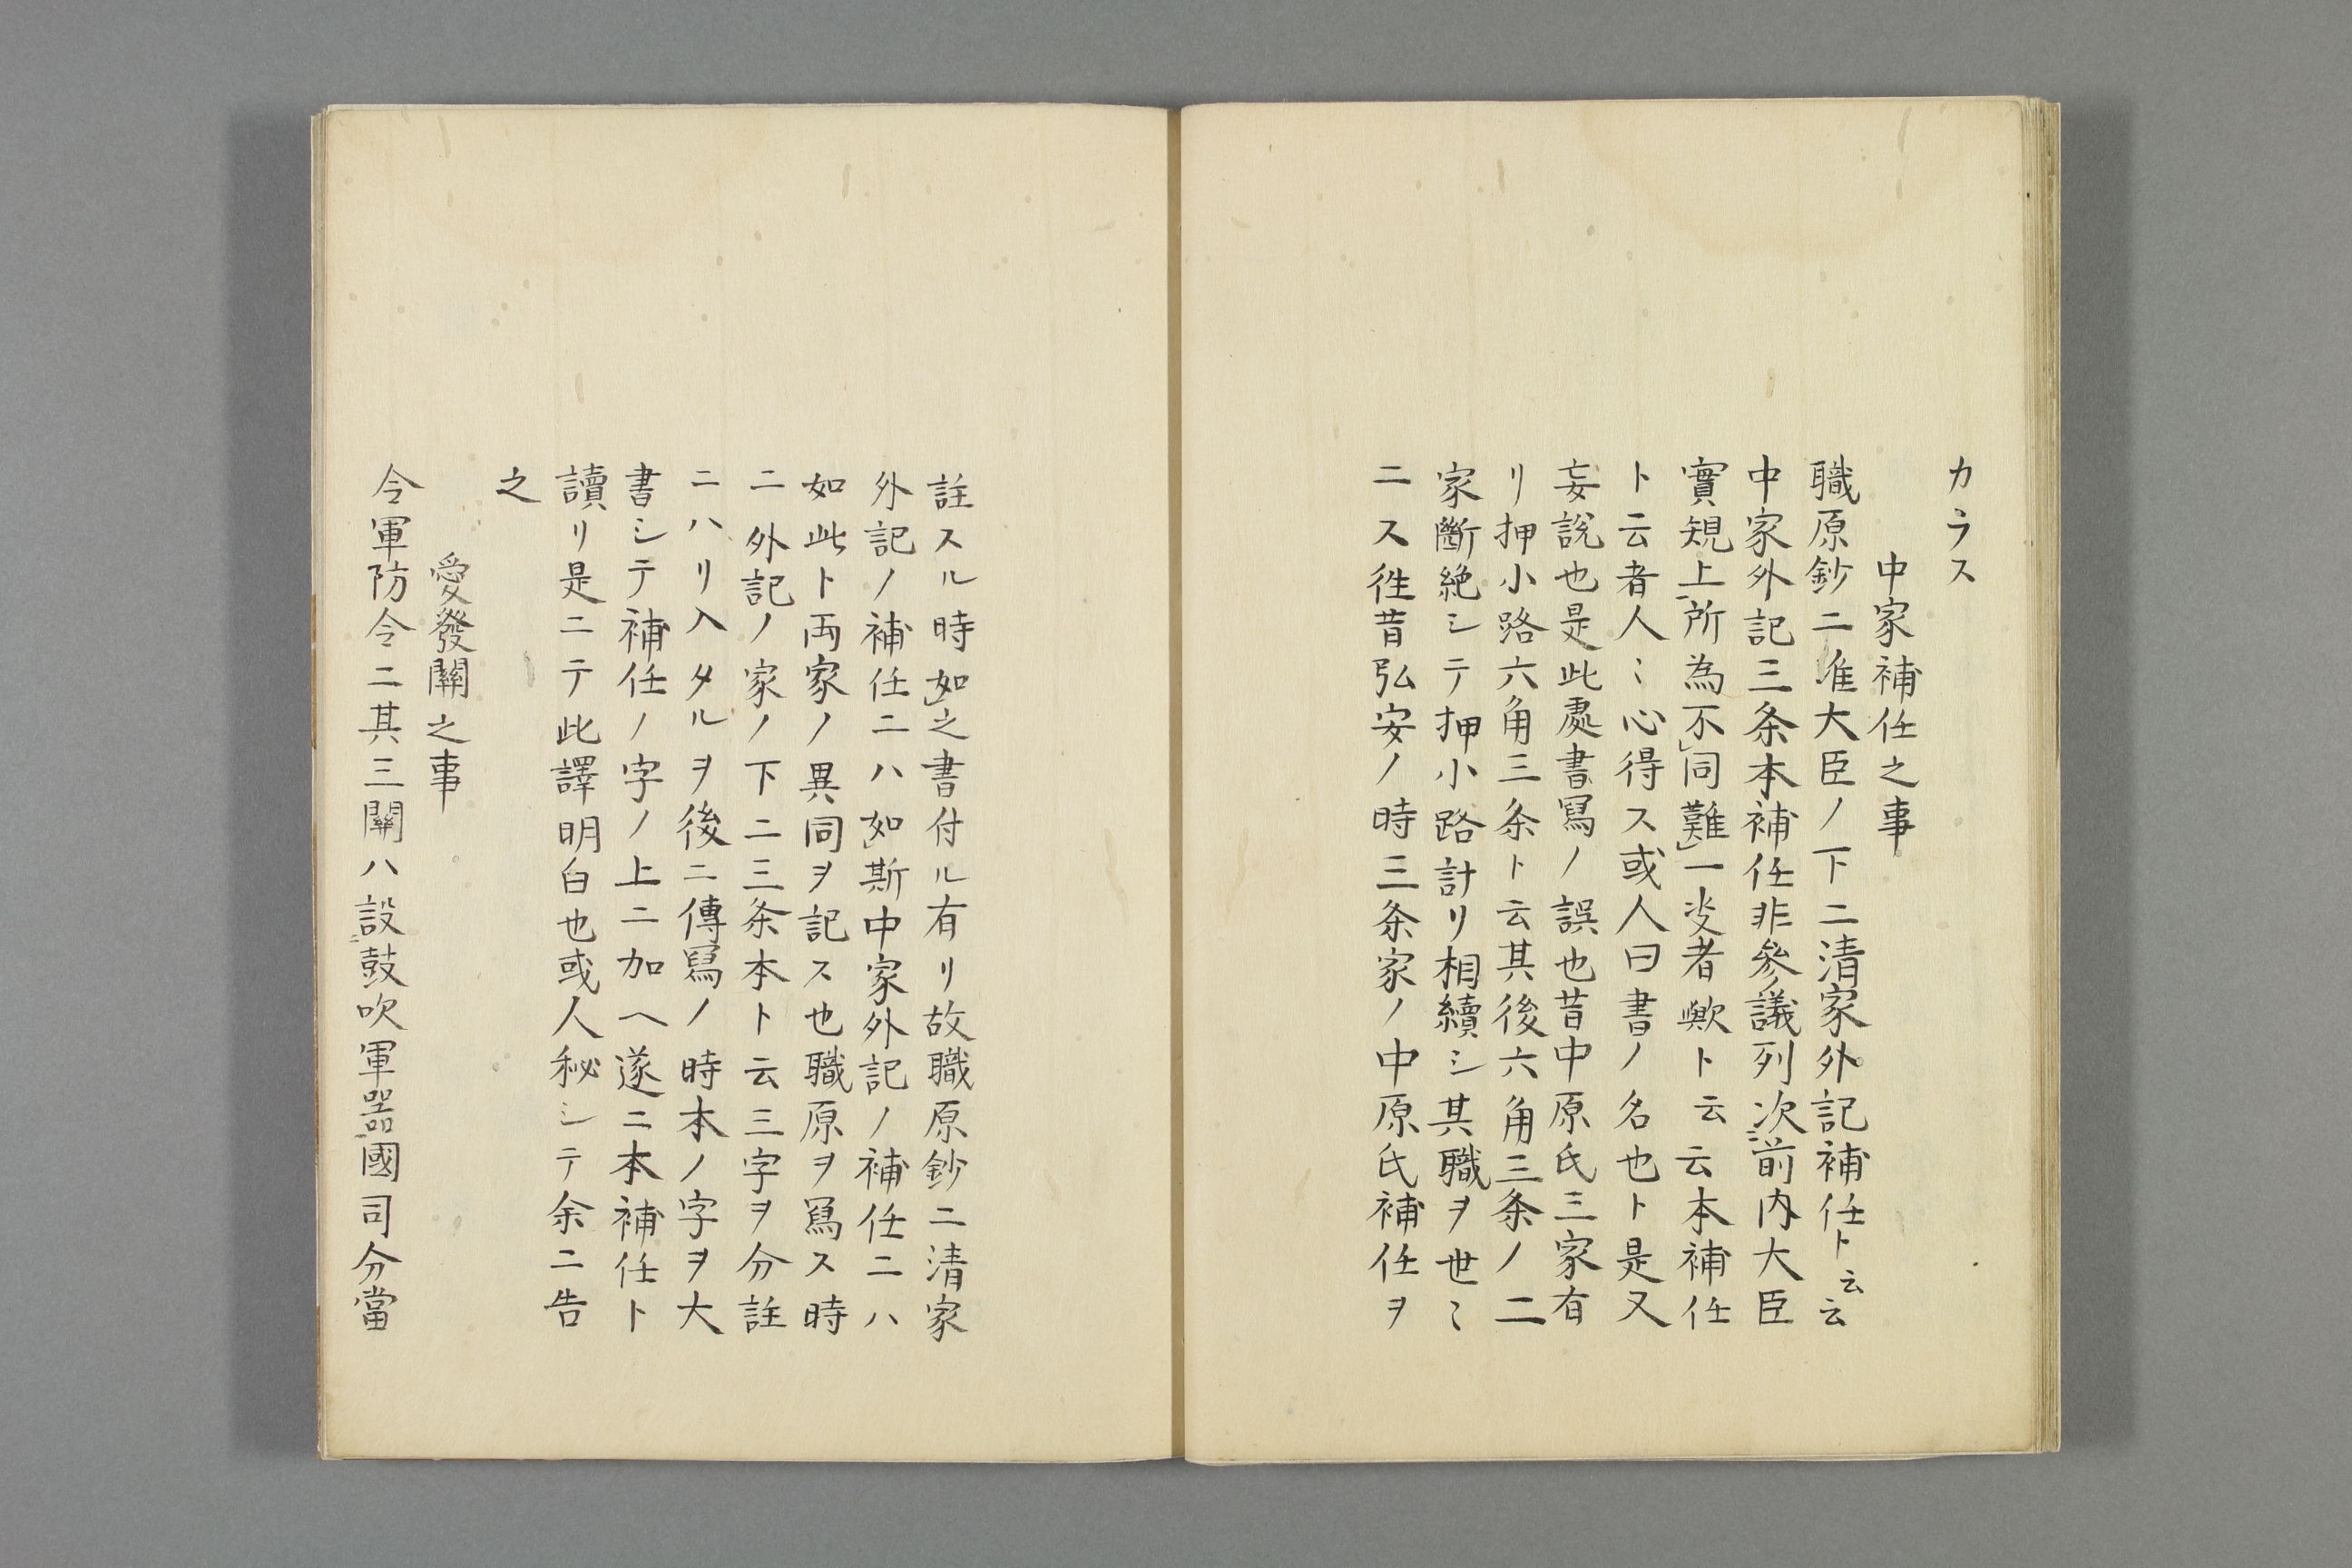 カラス
中家補任之事
職原鈔ニ准大臣ノ下ニ清家外記補任ト云云
中家外記三条本補任非參議列次ニ前内大臣
實䂓上所為不同難一㕝者歟ト云云本補任
ト云者人〻心得ス或人曰書ノ名也ト是又
妄説也是此處書冩ノ誤也昔中原氏三家有
リ押小路六角三条ト云其後六角三条ノ二
家斷絶シテ押小路計リ相續シ其職ヲ世〻
ニス徃昔弘安ノ時三条家ノ中原氏補任ヲ
註スル時如之書付ル有リ故職原鈔ニ清家
外記ノ補任ニハ如斯中家外記ノ補任ニハ
如此ト両家ノ異同ヲ記ス也職原ヲ冩ス時
ニ外記ノ家ノ下ニ三条本ト云三字ヲ分註
ニハリ入タルヲ後ニ傳冩ノ時本ノ字ヲ大
書シテ補任ノ字ノ上ニ加ヘ遂ニ本補任ト
讀リ是ニテ此譯明白也或人秘シテ余ニ告
之
愛發關之事
令軍防令ニ其三關ハ設ニ鼓吹軍噐國司分當